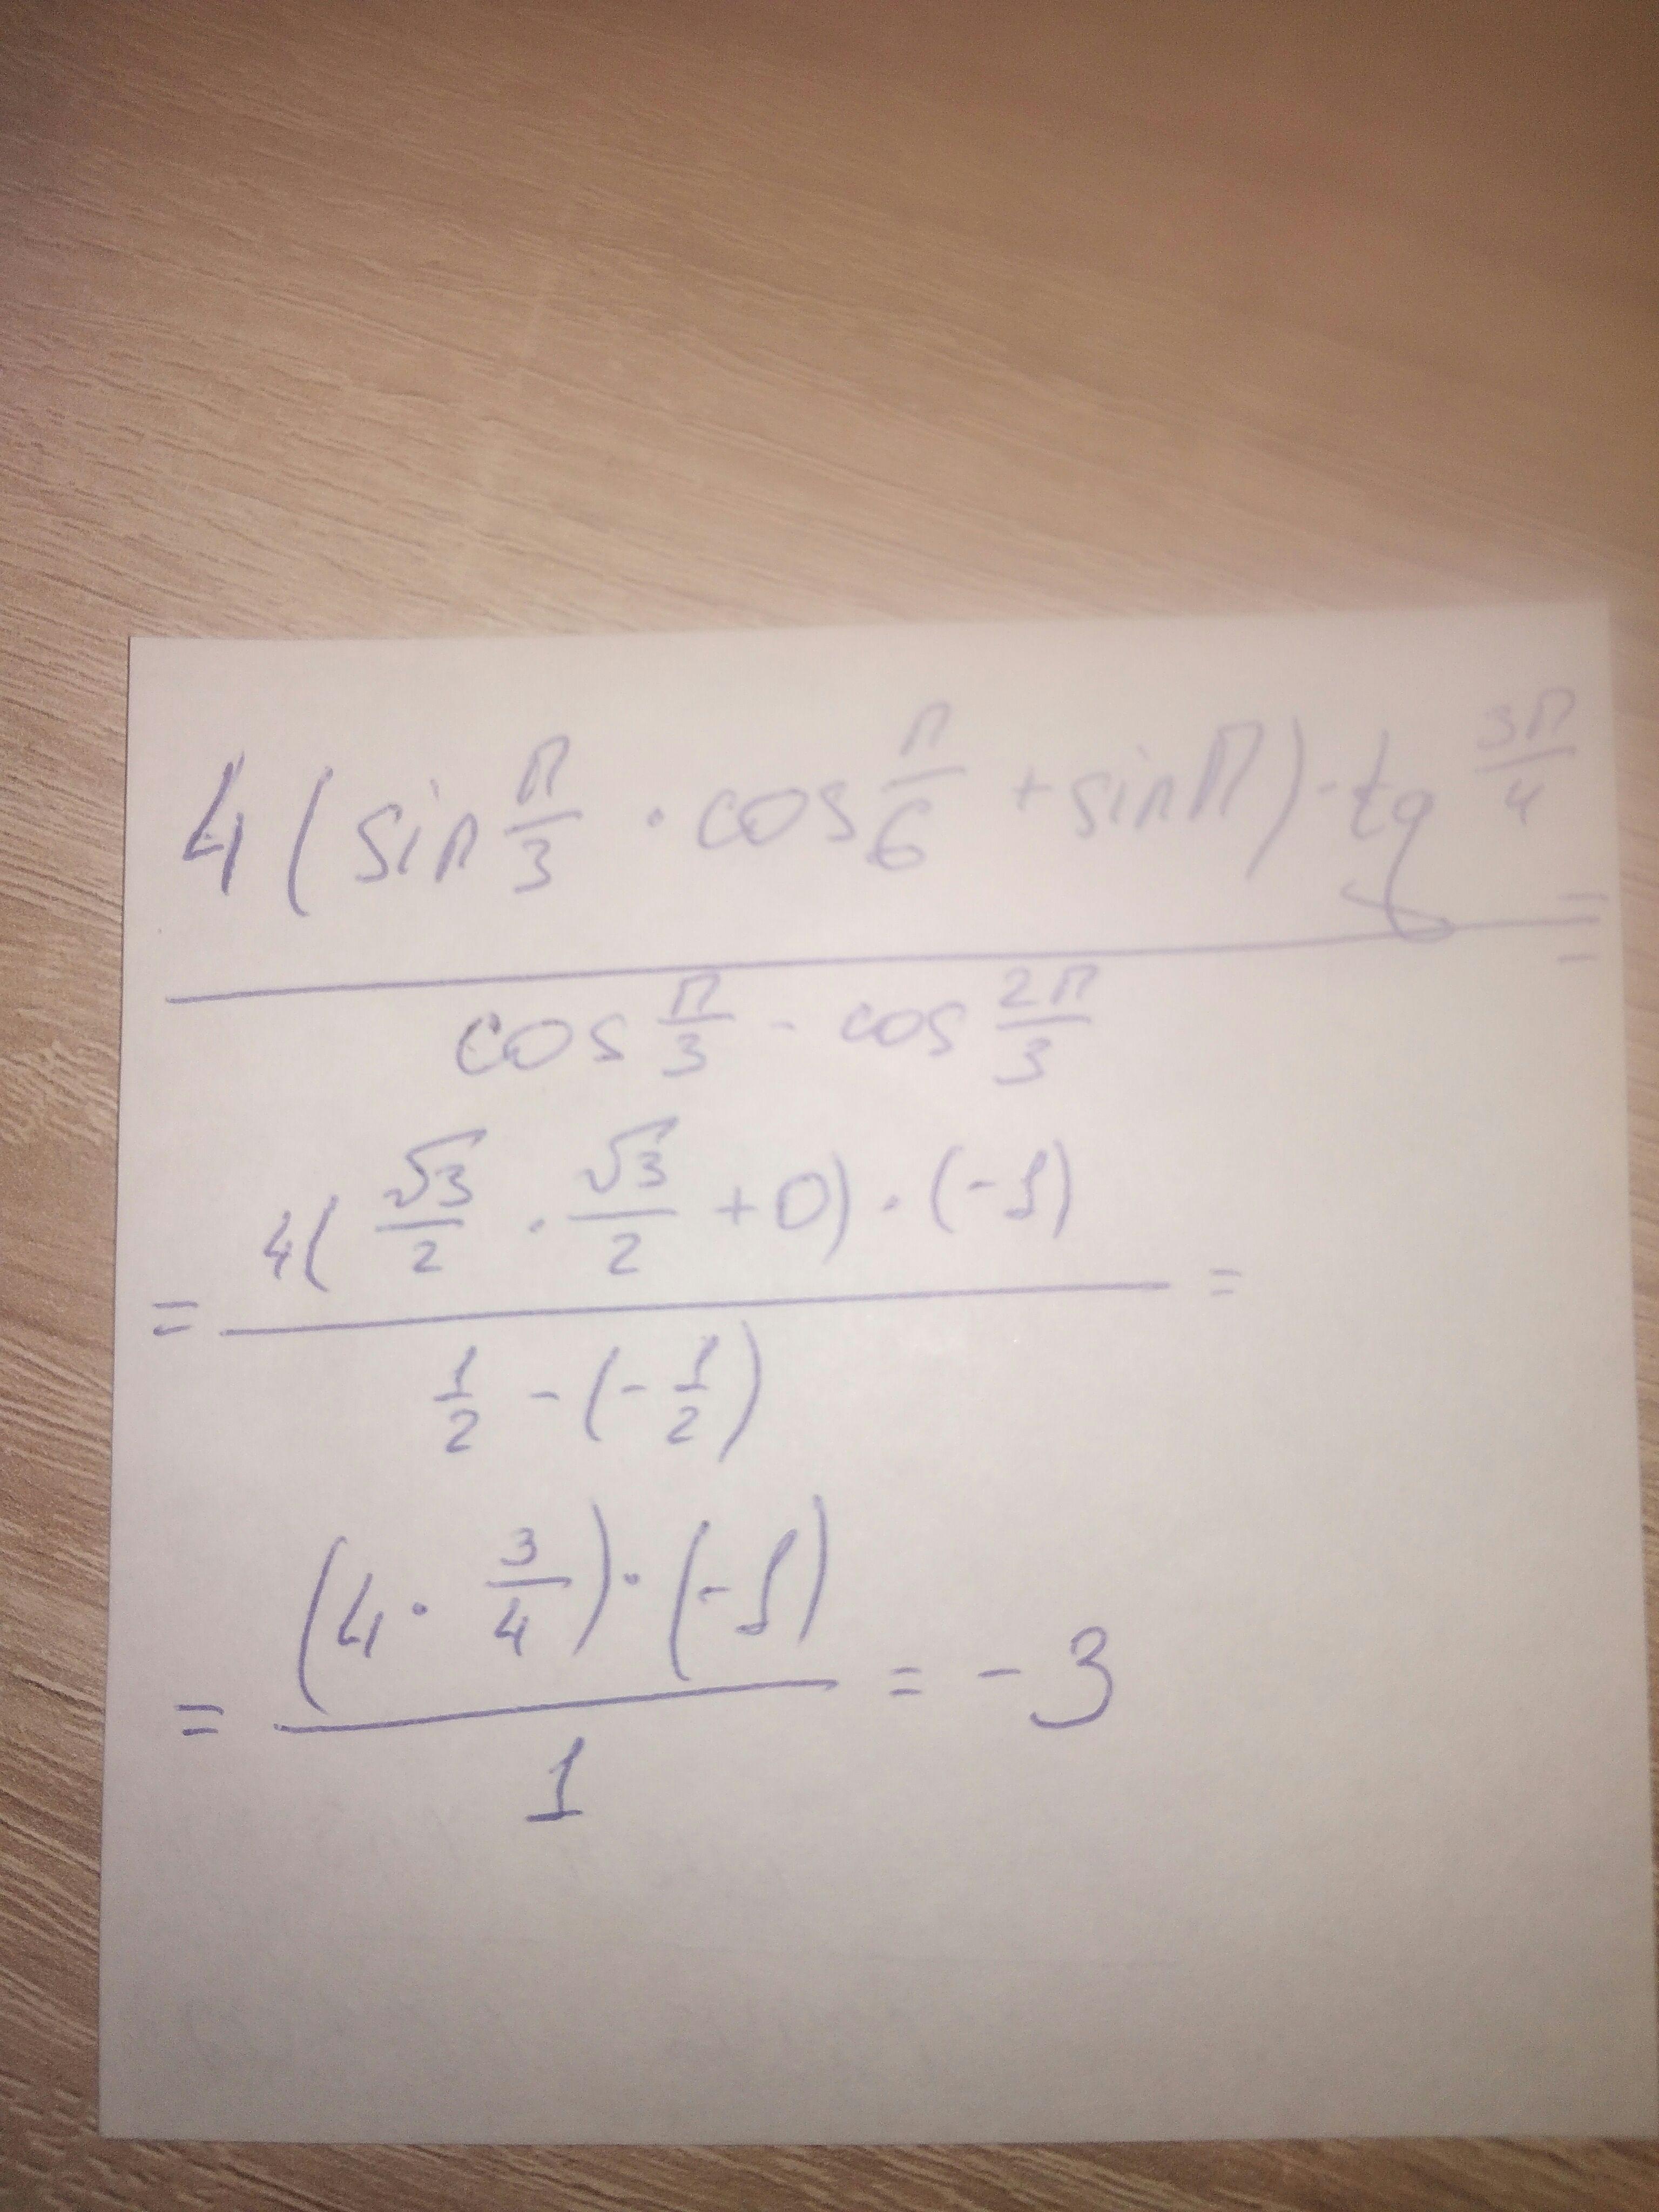 4(sin π/3 · cos π/6 + sin π) · tg 3π/4 =
cos π/3 - cos 2π/3
= 4(√3/2 · √3/2 + 0) · (-1) =
1/2 - (-1/2)
= (4 · 3/4) · (-1) = -3
1